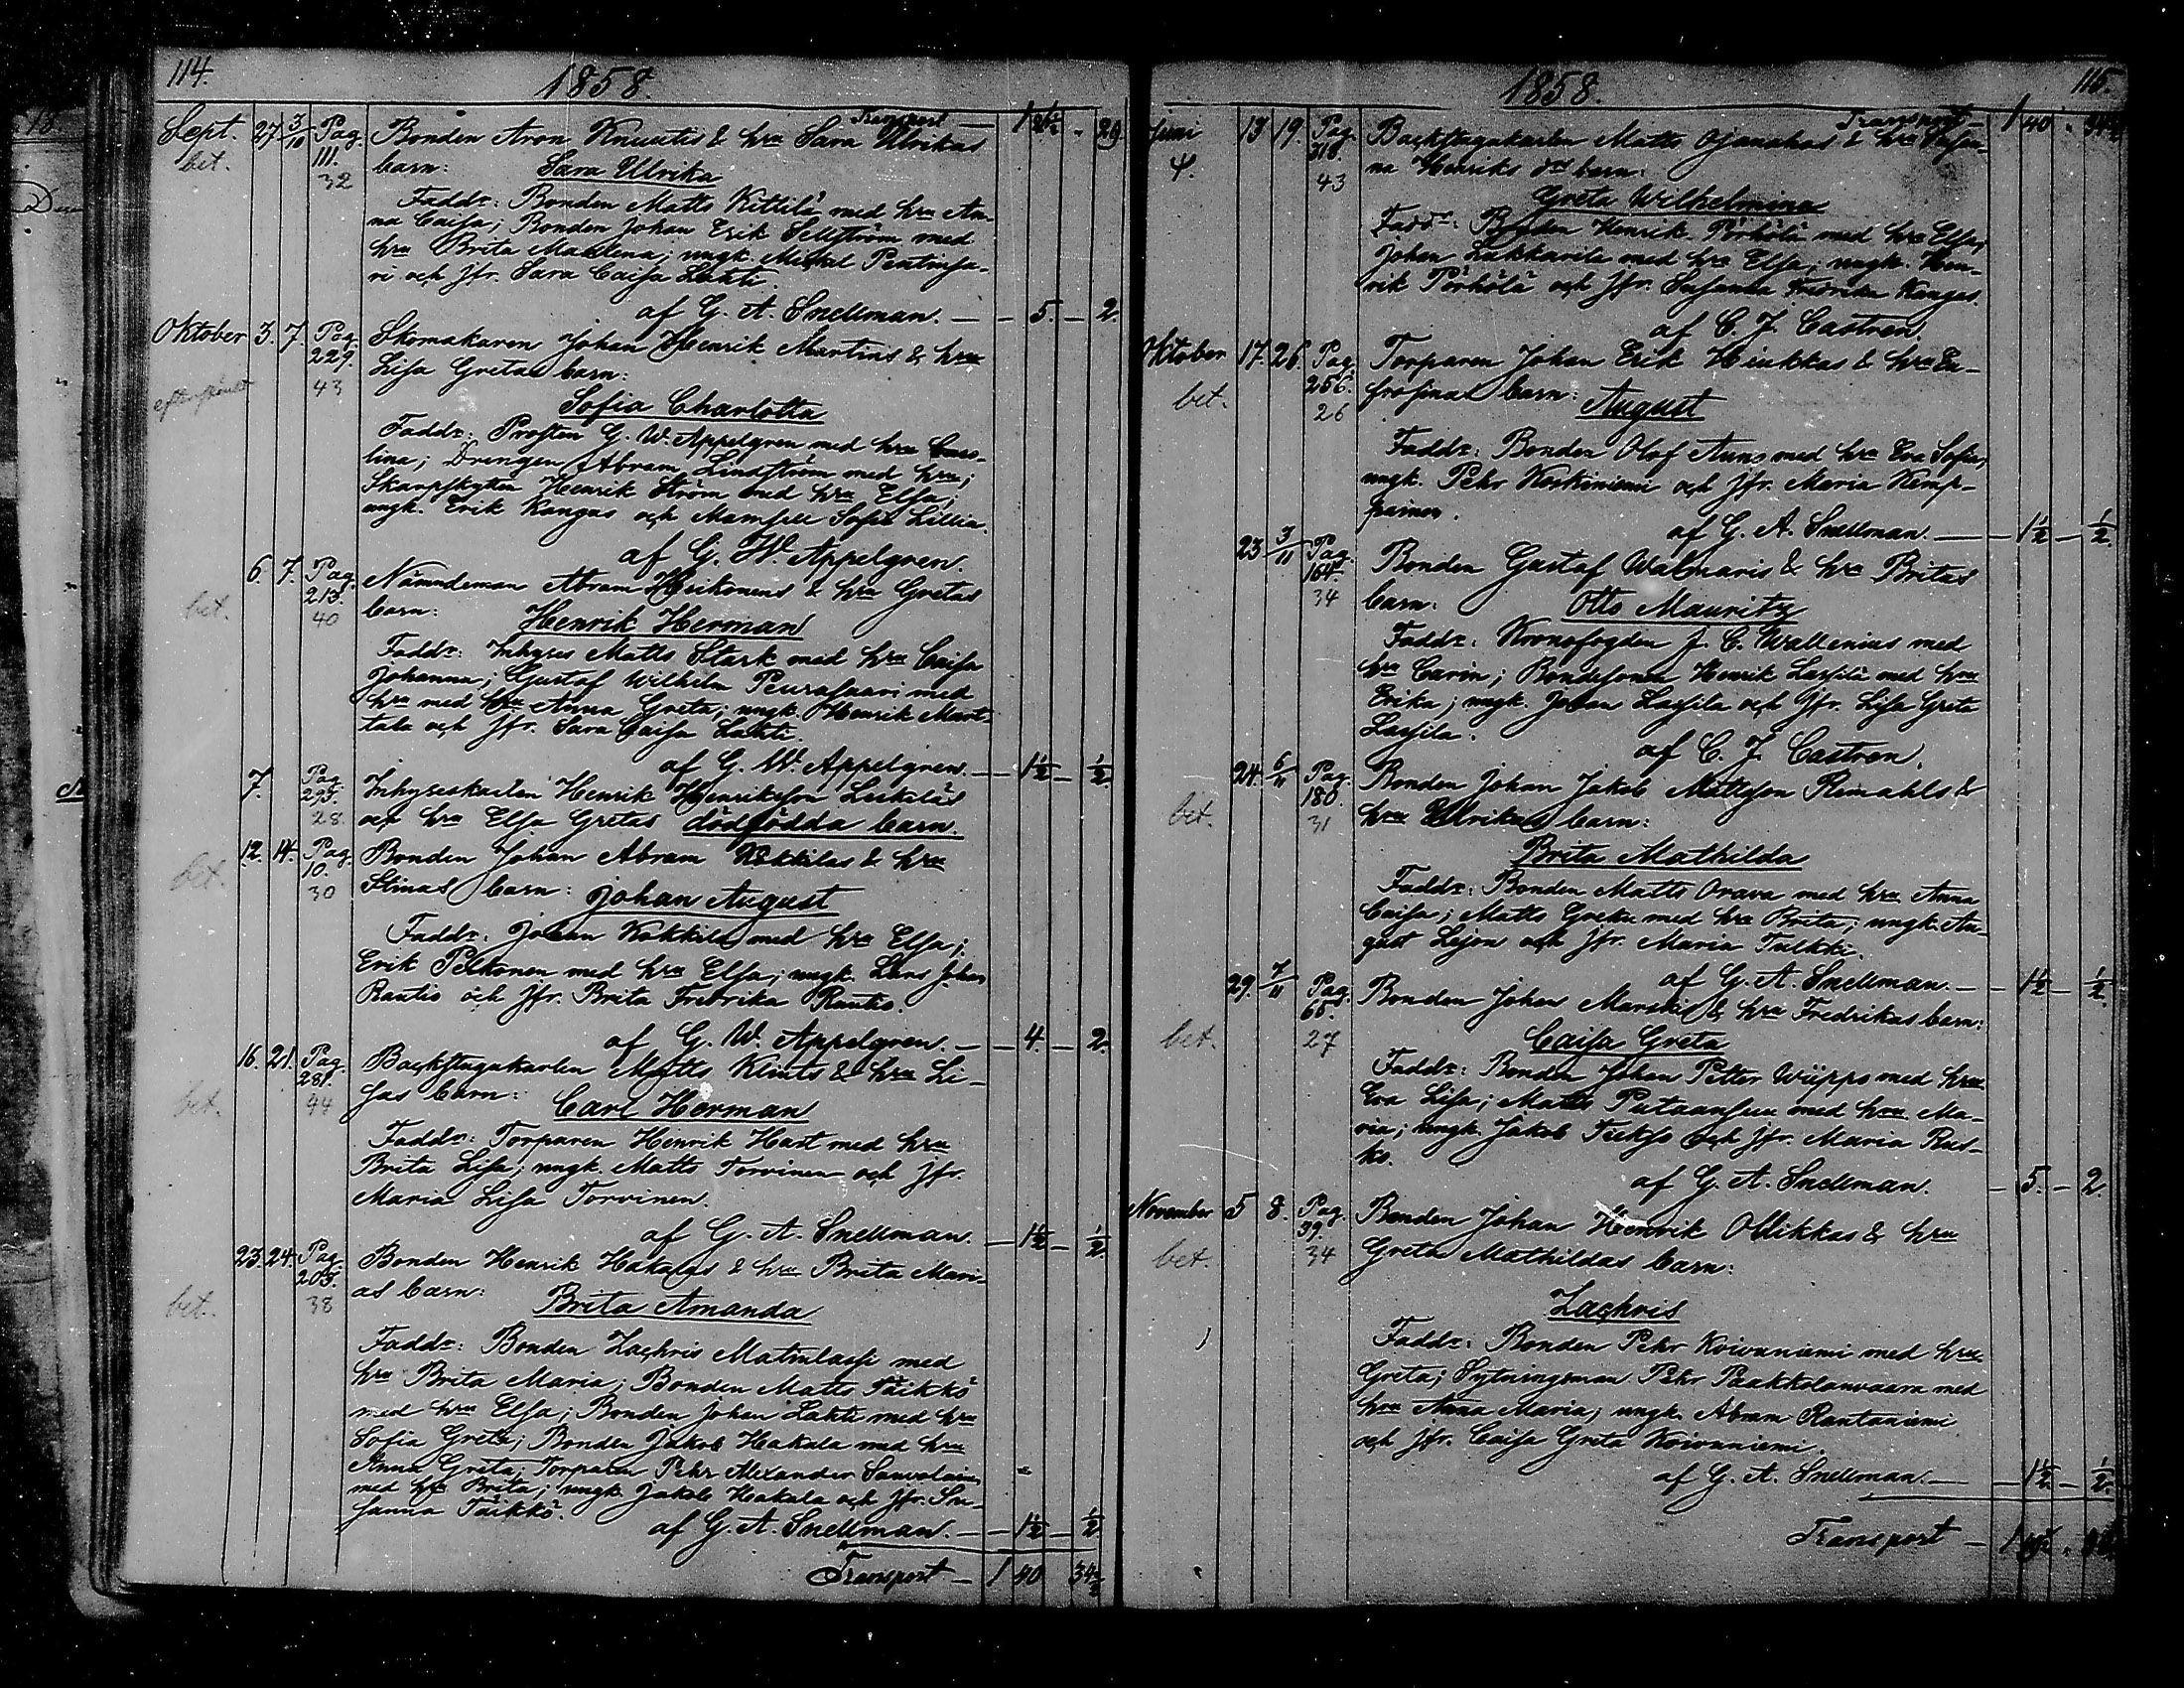 114.
1858.
Transport — 1 " 29
Sept. 27. 3/10 Pag. Bonden Aron Knuutis & hru Sara Ulrikas
bet. 111. 32 barn: Sara Ulrika
Faddr: Bonden Matts Kittilä med hru An-
na Caisa; Bonden Johan Erik Sellström med
hru Brita Maglena; ungk. Michal Pentinsa-
ri och Jfr. Sara Caisa Lahti.
af G. A. Snellman. — — 5. — 2.
Oktober 3. 7. Pag. Skomakaren Johan Henrik Martins & hru
229. Lisa Gretas barn:
43
Sofia Charlotta
Faddr: Prosten G. W. Appelgren med hru Caro-
lina; Drengen Abram Lindström med hru;
Skarpskytten Henrik Ström med hru Elsa;
ungk. Erik Kangas och Mamsell Sofia Lillia.
af G. W. Appelgren.
6. 7. Pag. Nämndeman Abram Heikonens & hru Gretas
bet. 213. 40 barn: Henrik Herman
Faddr: Inhyses Matts Stark med hru Caisa
Johanna; Gustaf Wilhelm Peurasaari med
hru med hru Anna Greta; ungk. Henrik Mart-
tala och Jfr. Sara Caisa Lahti.
af G. W. Appelgren. — — 1½ — ½
7. Pag. Inhyseskarlen Henrik Henriksson Leskeläs
293. 28. och hru Elsa Gretas dödfödda barn.
12. 14. Pag. Bonden Johan Abram Kokkilas & hru
bet. 10. 30 Stinas barn: Johan August
Faddr: Johan Kokkila med hru Elsa;
Erik Pelkonen med hru Elsa; ungk. Lars Johan
Rautio och Jfr. Brita Fredrika Rautio.
af G. W. Appelgren. — — 4. — 2.
16. 21. Pag. Backstugukarlen Matts Klints & hru Li-
bet. 281. 44 sas barn: Carl Herman
Faddr: Torparen Henrik Hast med hru
Brita Lisa; ungk. Matts Torvinen och Jfr.
Maria Lisa Torvinen.
af G. A. Snellman. — 1½ — ½
23. 24. Pag. Bonden Henrik Hakalas & hru Brita Mari-
bet. 205. 38 as barn: Brita Amanda
Faddr: Bonden Zachris Matinlassi med
hru Brita Maria; Bonden Matts Täikkö
med hru Elsa; Bonden Johan Lahti med hru
Sofia Greta; Bonden Jakob Hakala med hru
Anna Greta; Torparen Pehr Alexander
med hru Brita; ungk. Jakob Hakala och Jfr. Su-
sanna Täikkö.
af G. A. Snellman. — — 1½ — ½
Transport — 1 40 34½
1858.
115.
Transport — 1 40 " 34½
Juni 13 19. Pag. Backstugukarlen Matts Ojanahas & hru Susan-
4. 318. 43 na Henriks drs barn:
Greta Wilhelmina
Faddr: Bonden Henrik Pörhölä med hru Elsa;
Johan Lukkarila med hru Elsa; ungk. Hen-
rik Pörhölä och Jfr. Susanna Fredrika Kangas.
af C. J. Castren.
Oktober 17. 26. Pag. Torparen Johan Erik Heikkas & hru Eu-
bet. 256. 26 frosinas barn: August
Faddr: Bonden Olof Auno med hru Eva Sofia;
ungk. Pehr Koskiniemi och Jfr. Maria Kemp-
painen.
af G. A. Snellman. — — 1½ — ½
23. 3/11 Pag. Bonden Gustaf Walmaris & hru Britas
164. 34 barn: Otto Mauritz
Faddr: Kronofogden J. C. Wallenius med
hru Carin; Bondesonen Henrik Lassila med hru
Erika; ungk. Johan Lassila och Jfr. Lisa Greta
Lassila.
af C. J. Castren.
24. 6/11 Pag. Bonden Johan Jakob Mattsson Rimahls &
bet. 180. 31 hru Ulrikas barn:
Brita Mathilda
Faddr: Bonden Matts Orava med hru Anna
Caisa; Matts Greku med hru Brita; ungk. Au-
gust Lejon och Jfr. Maria Tulkki.
af G. A. Snellman. — — 1½ — ½
29. 7/11 Pag. Bonden Johan Marskis & hru Fredrikas barn:
bet. 65. 27 Caisa Greta
Faddr: Bonden Johan Petter Wiippo med hru
Eva Lisa; Matts Putaansuu med hru Ma-
ria; ungk. Jakob och Jfr. Maria Rus-
ko.
af G. A. Snellman. — 5. — 2.
November 5 8. Pag. Bonden Johan Henrik Ollikkas & hru
bet. 39. 34 Greta Mathildas barn:
Zachris
Faddr: Bonden Pehr Koivuniemi med hru
Greta; Sytningsman Pehr Paakkolanvaara med
hru Anna Maria; ungk. Abram Rantaniemi
och Jfr. Caisa Greta Koivuniemi.
af G. A. Snellman. — — 1½ — ½
Transport — 1